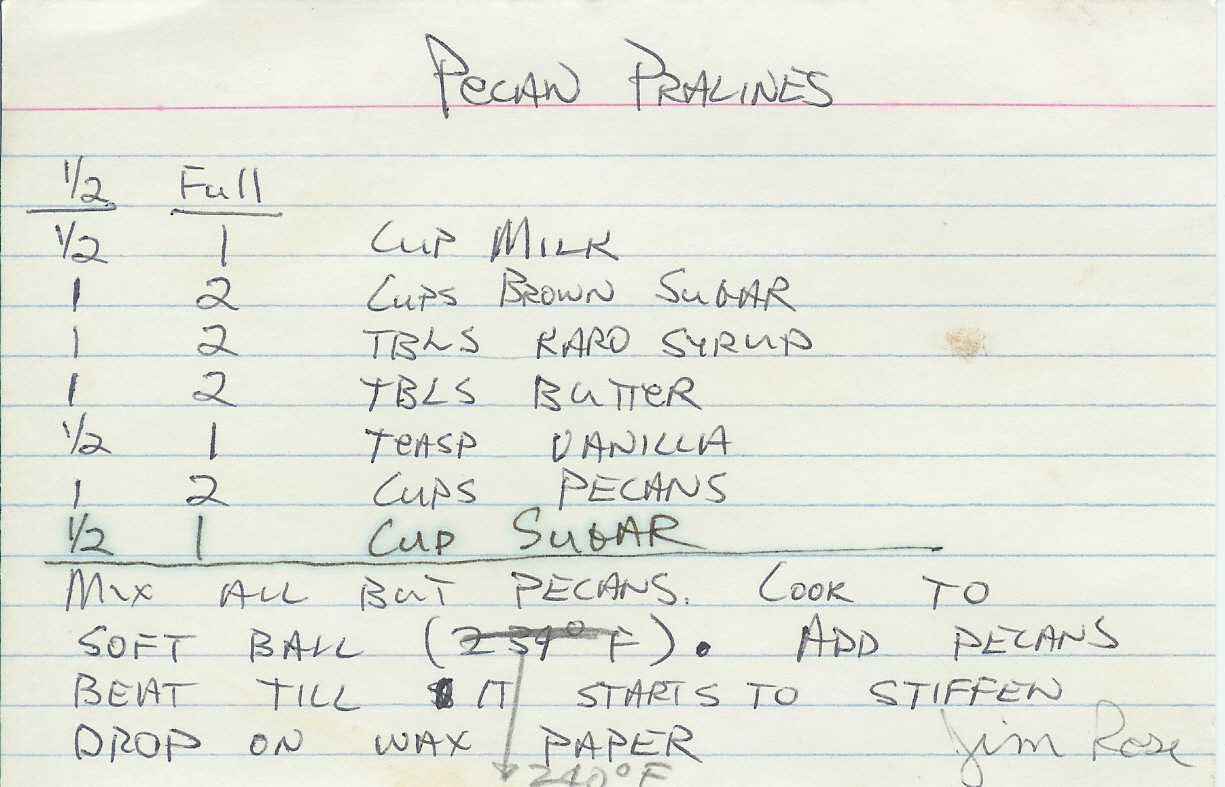 PECAN PRALINES
1/2 Full
1/2 1 CUP MILK
1 2 CUPS BROWN SUGAR
1 2 TBLS KARO SYRUP
1 2 TBLS BUTTER
1/2 1 TEASP VANILLA
1 2 CUPS PECANS
1/2 1 CUP SUGAR
MIX ALL BUT PECANS. COOK TO
SOFT BALL (234° F). ADD PECANS
BEAT TILL IT STARTS TO STIFFEN
DROP ON WAX PAPER Jim Rose
240° F